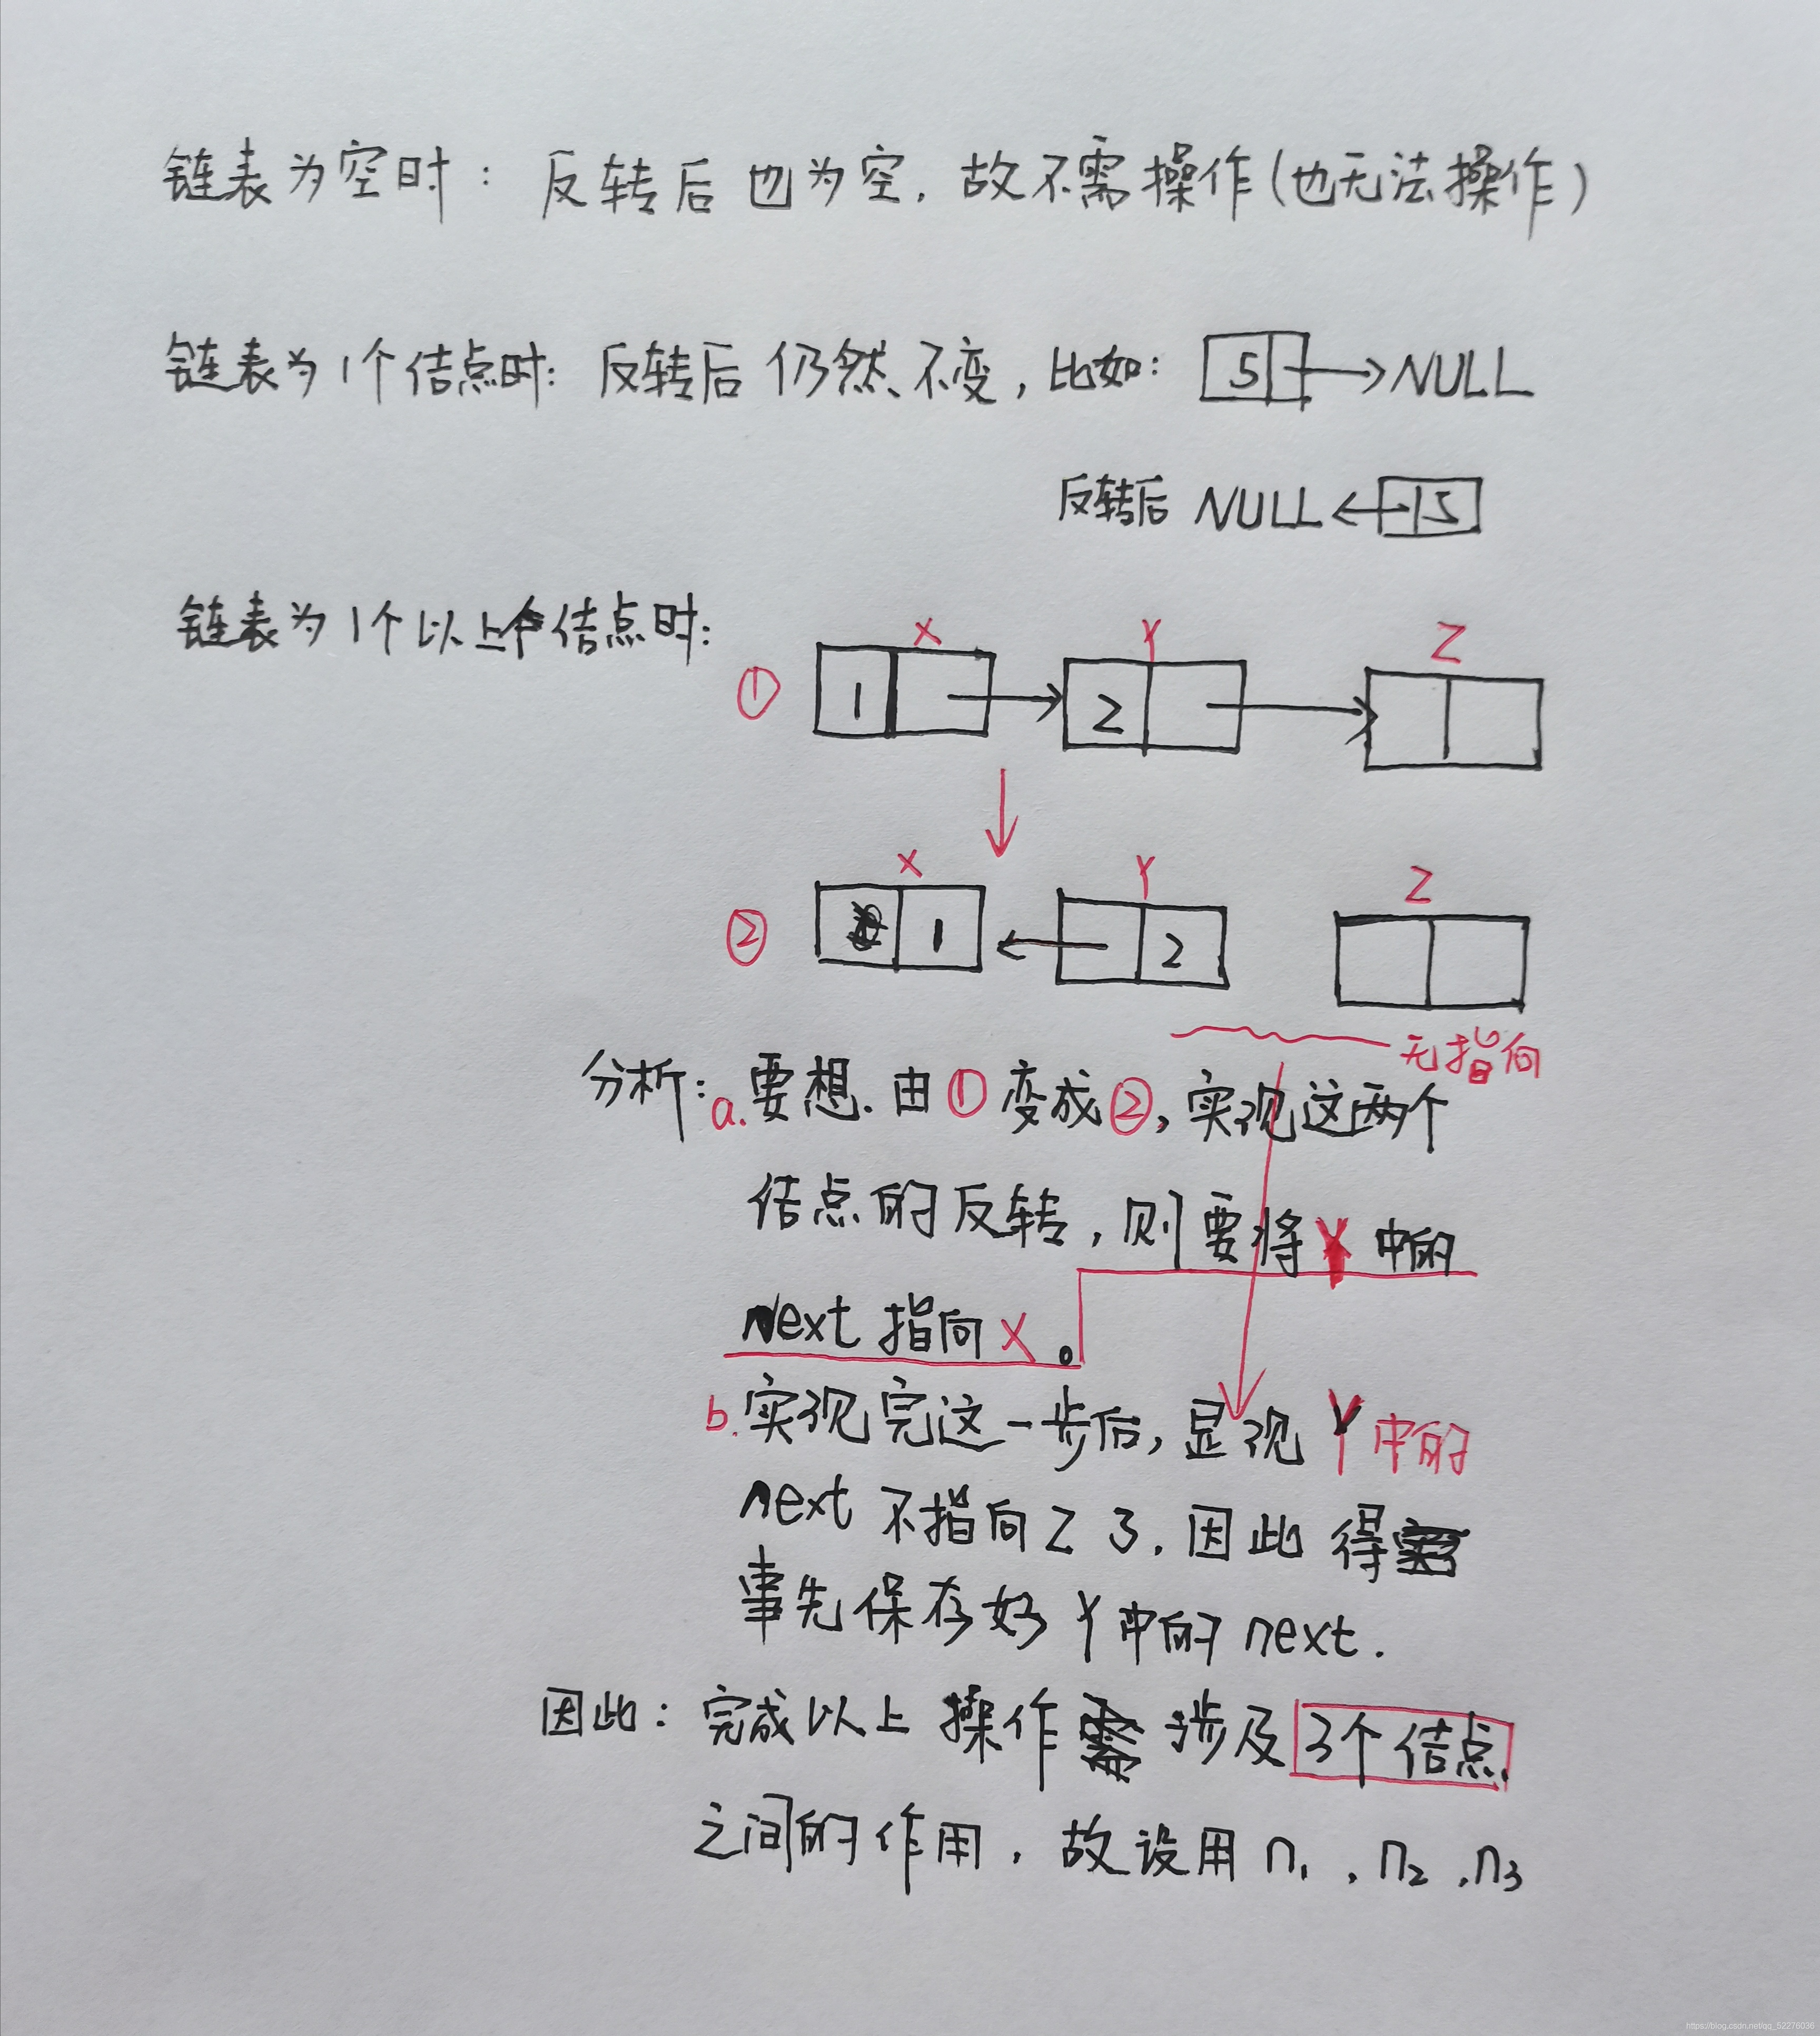 链表为空时：反转后也为空，故不需操作（也无法操作）
链表为1个结点时：反转后仍然不变，比如： 5 NULL
反转后 NULL 5
链表为1个以上个结点时：
X Y Z
① 1 2
X Y Z
② 1 2
无指向
分析：a.要想.由①变成②，实现这两个
结点的反转，则要将Y中的
next指向X。
b.实现完这一步后，显现Y中的
next不指向Z了.因此得
事先保存好Y中的next.
因此：完成以上操作涉及3个结点
之间的作用，故设用n₁，n₂，n₃
https://blog.csdn.net/qq_52276036